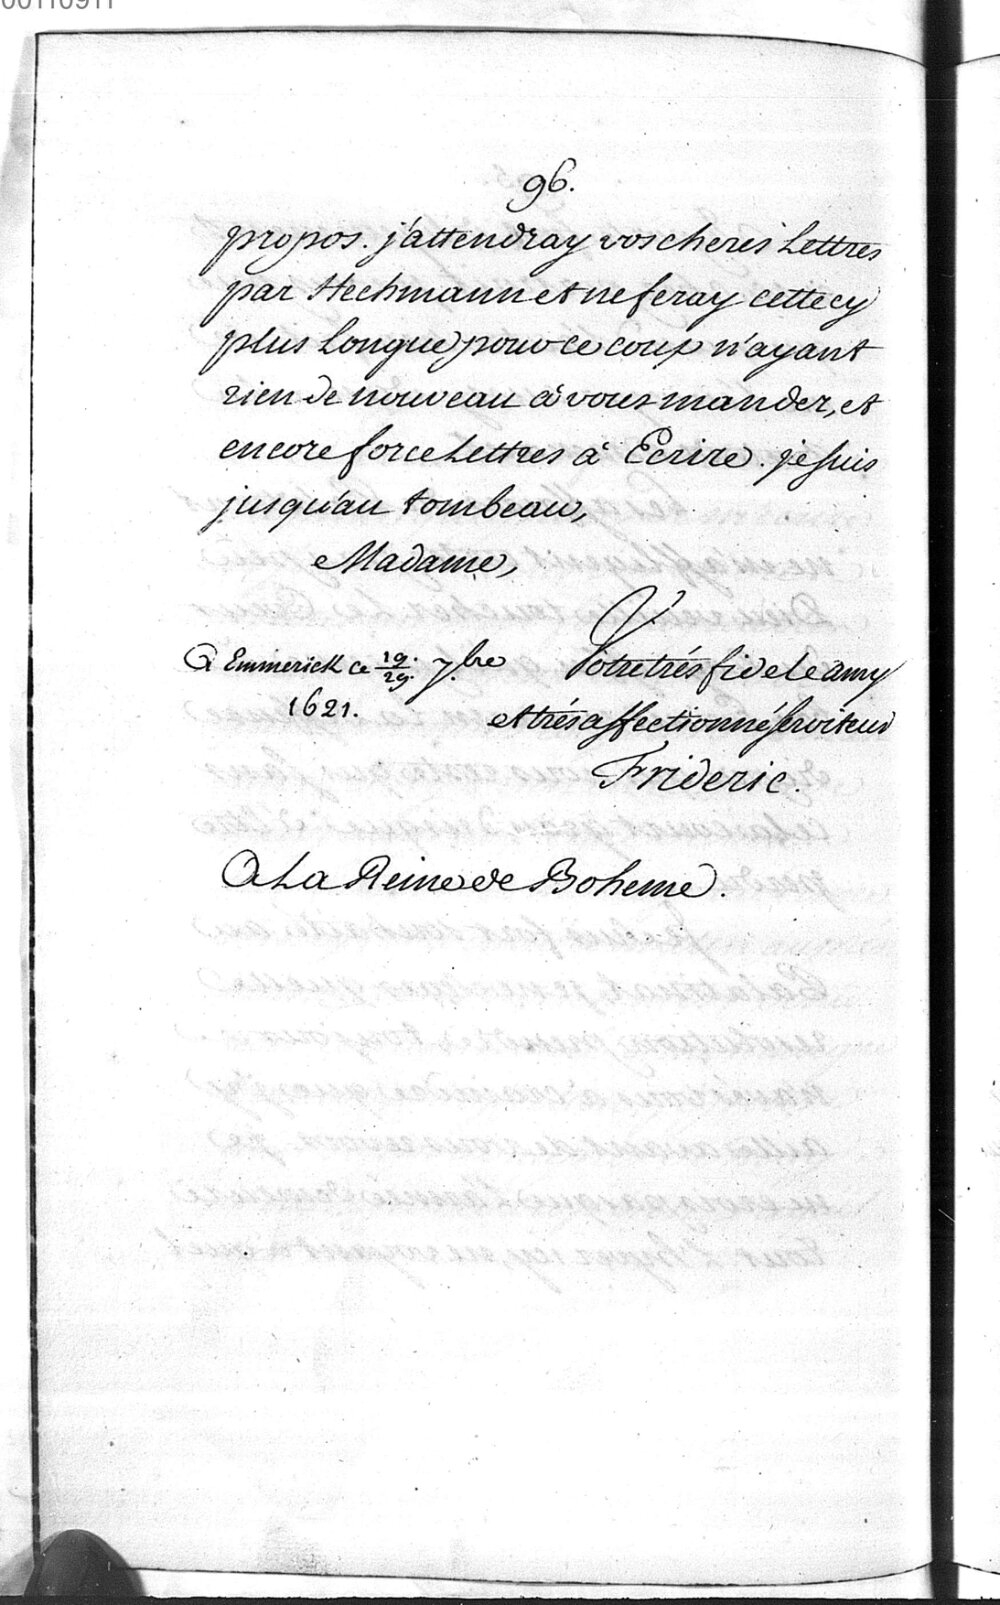 00110911
96.
propos. j'attendray vos cheres Lettres
par Hechmann et ne feray cettecy
plus Longue pour ce coup n'ayant
rien de nouveau à vous mander, et
encore force Lettres à Ecrire. je suis
jusqu'au tombeau,
Madame,
Votre trés fidele amy
A Emmerick ce 19./29. 7.bre
1621.
et trés affectionné serviteur
Frideric.
A La Reine de Boheme.